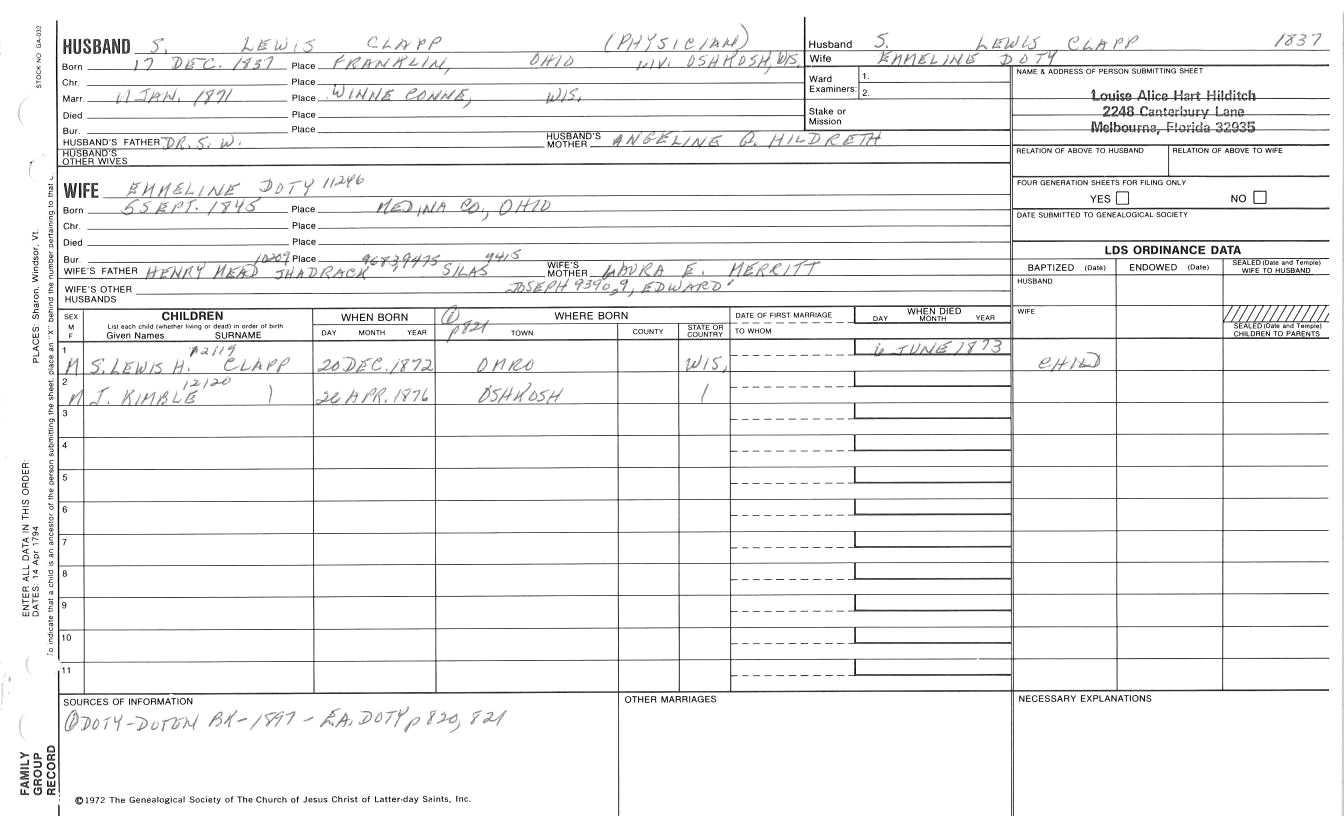 STOCK NO. GA-032
HUSBAND S. LEWIS CLAPP (PHYSICIAN)
Born 17 DEC. 1837 Place FRANKLIN, OHIO LIV. OSHKOSH, WIS.
Chr. Place
Marr. 11 JAN. 1871 Place WINNE CONNE, WIS.
Died Place
Bur. Place
HUSBAND'S FATHER DR. S. W. HUSBAND'S MOTHER ANGELINE Q. HILDRETH
HUSBAND'S OTHER WIVES
WIFE EMMELINE DOTY 11246
Born 5 SEPT. 1845 Place MEDINA CO., OHIO
Chr. Place
Died Place
Bur. Place
10209 9683, 9475 9415
WIFE'S FATHER HENRY MEAD SHADRACK SILAS WIFE'S MOTHER LAURA E. MERRITT
WIFE'S OTHER HUSBANDS JOSEPH 9390, 9, EDWARD'
Husband S. LEWIS CLAPP 1837
Wife EMMELINE DOTY
Ward Examiners: 1. 2.
Stake or Mission
NAME & ADDRESS OF PERSON SUBMITTING SHEET
Louise Alice Hart Hilditch
2248 Canterbury Lane
Melbourne, Florida 32935
RELATION OF ABOVE TO HUSBAND RELATION OF ABOVE TO WIFE
FOUR GENERATION SHEETS FOR FILING ONLY
YES NO
DATE SUBMITTED TO GENEALOGICAL SOCIETY
LDS ORDINANCE DATA
BAPTIZED (Date) ENDOWED (Date) SEALED (Date and Temple) WIFE TO HUSBAND
HUSBAND
WIFE
SEALED (Date and Temple) CHILDREN TO PARENTS
SEX M F
CHILDREN
List each child (whether living or dead) in order of birth
Given Names SURNAME
WHEN BORN
DAY MONTH YEAR
① p821
WHERE BORN
TOWN COUNTY STATE OR COUNTRY
DATE OF FIRST MARRIAGE
TO WHOM
WHEN DIED
DAY MONTH YEAR
12119
1 M S. LEWIS H. CLAPP 20 DEC. 1872 OMRO WIS. 6 JUNE 1873 CHILD
12120
2 M J. KIMBLE ) 26 APR. 1876 OSHKOSH /
3
4
5
6
7
8
9
10
11
SOURCES OF INFORMATION
① DOTY-DOTEN BK - 1897 - E.A. DOTY p 820, 821
OTHER MARRIAGES
NECESSARY EXPLANATIONS
©1972 The Genealogical Society of The Church of Jesus Christ of Latter-day Saints, Inc.
PLACES: Sharon, Windsor, Vt.
ENTER ALL DATA IN THIS ORDER:
DATES: 14 Apr 1794
To indicate that a child is an ancestor of the person submitting the sheet, place an "X" behind the number pertaining to that
FAMILY GROUP RECORD